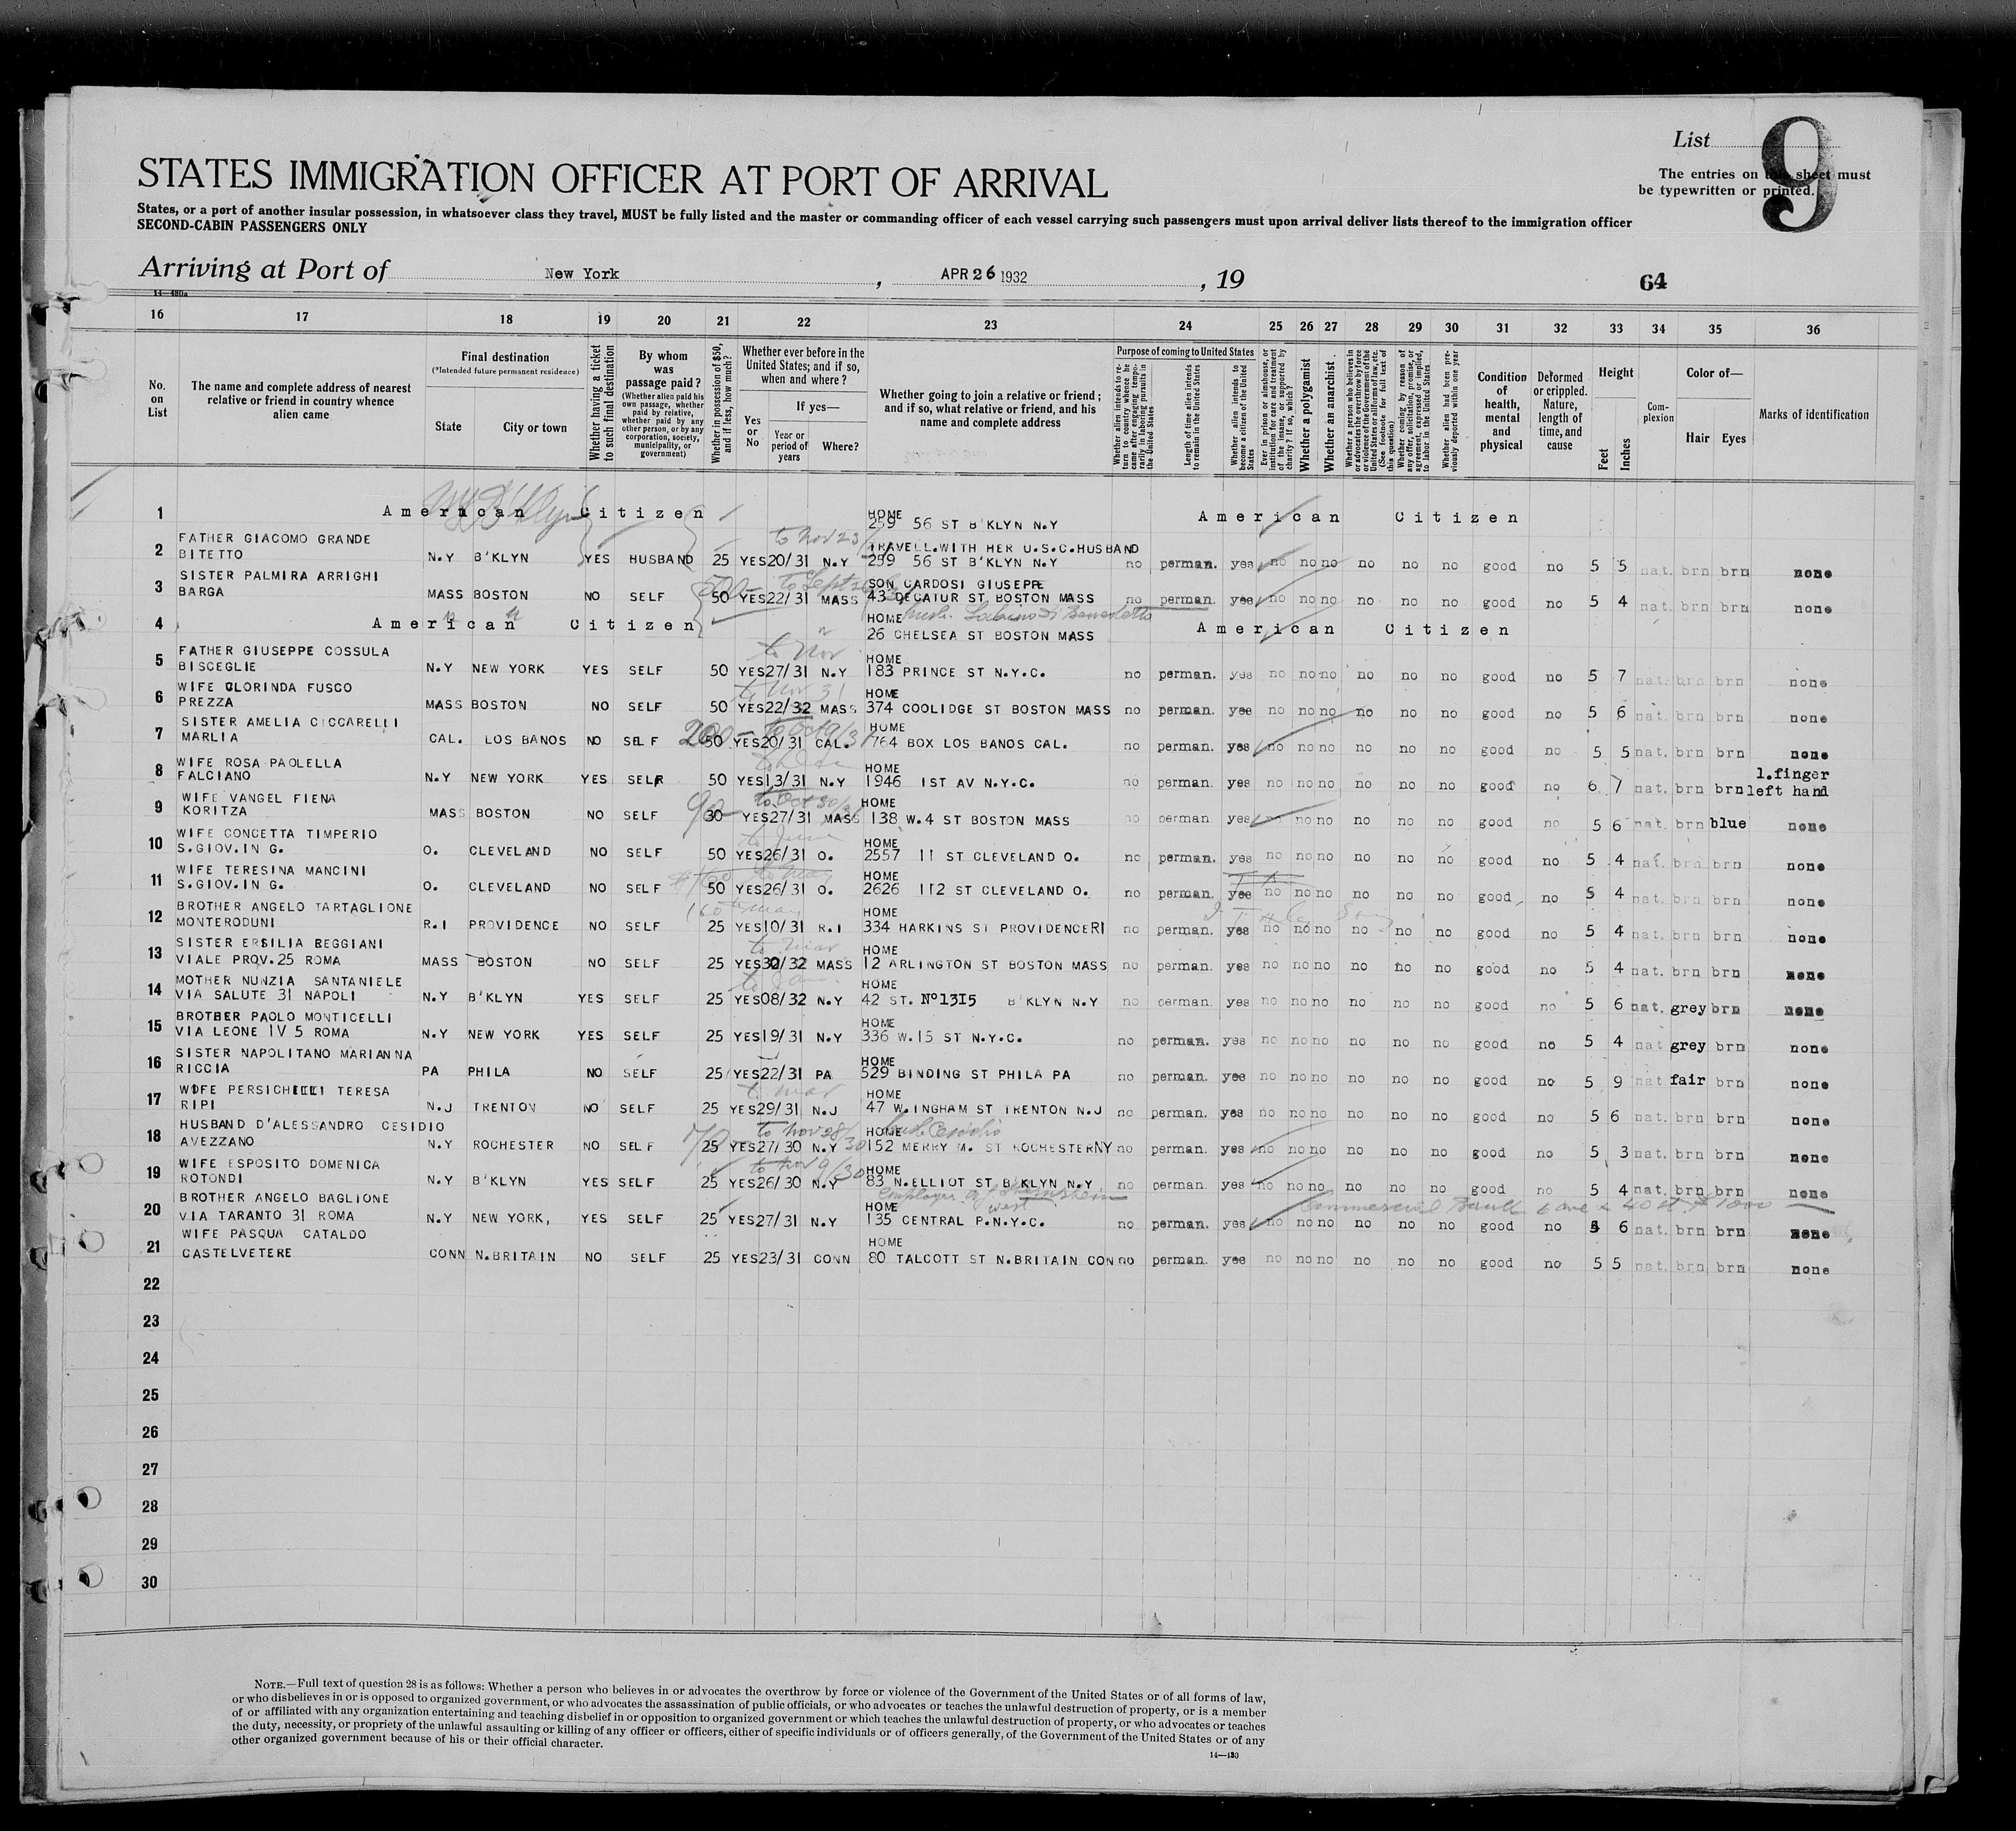 List 9
The entries on this sheet must
be typewritten or printed.
STATES IMMIGRATION OFFICER AT PORT OF ARRIVAL
States, or a port of another insular possession, in whatsoever class they travel, MUST be fully listed and the master or commanding officer of each vessel carrying such passengers must upon arrival deliver lists thereof to the immigration officer
SECOND-CABIN PASSENGERS ONLY
Arriving at Port of New York , APR 26 1932 , 19 64
14—480a
16 17 18 19 20 21 22 23 24 25 26 27 28 29 30 31 32 33 34 35 36
No. on List
The name and complete address of nearest relative or friend in country whence alien came
Final destination
(*Intended future permanent residence)
State City or town
Whether having a ticket to such final destination
By whom was passage paid?
(Whether alien paid his own passage, whether paid by relative, whether paid by any other person, or by any corporation, society, municipality, or government)
Whether in possession of $50, and if less, how much?
Whether ever before in the United States; and if so, when and where?
Yes or No
If yes—
Year or period of years Where?
Whether going to join a relative or friend; and if so, what relative or friend, and his name and complete address
Purpose of coming to United States
Whether alien intends to return to country whence he came after engaging temporarily in laboring pursuits in the United States
Length of time alien intends to remain in the United States
Whether alien intends to become a citizen of the United States
Ever in prison or almshouse, or institution for care and treatment of the insane, or supported by charity? If so, which?
Whether a polygamist
Whether an anarchist
Whether a person who believes in or advocates the overthrow by force or violence of the Government of the United States or all forms of law, etc. (See footnote for full text of this question)
Whether coming by reason of any offer, solicitation, promise, or agreement, expressed or implied, to labor in the United States
Whether alien had been previously deported within one year
Condition of health, mental and physical
Deformed or crippled. Nature, length of time, and cause
Height
Feet Inches
Complexion
Color of—
Hair Eyes
Marks of identification
1 American Citizen HOME American Citizen
259 56 ST B'KLYN N.Y
to Nov 23
2 FATHER GIACOMO GRANDE TRAVELL.WITH HER U.S.C.HUSBAND
BITETTO N.Y B'KLYN YES HUSBAND 25 YES 20/31 N.Y 259 56 ST B'KLYN N.Y no perman. yes no no no no no no good no 5 5 nat. brn brn none
3 SISTER PALMIRA ARRIGHI SON CARDOSI GIUSEPPE
BARGA MASS BOSTON NO SELF 50 YES 22/31 MASS 43 DECATUR ST. BOSTON MASS no perman. yes no no no no no no good no 5 4 nat. brn brn none
4 American Citizen HOME American Citizen
26 CHELSEA ST BOSTON MASS
to Nov
5 FATHER GIUSEPPE COSSULA HOME
BISCEGLIE N.Y NEW YORK YES SELF 50 YES 27/31 N.Y 183 PRINCE ST N.Y.C. no perman. yes no no no no no no good no 5 7 nat. brn brn none
to Nov 31
6 WIFE CLORINDA FUSCO HOME
PREZZA MASS BOSTON NO SELF 50 YES 22/32 MASS 374 COOLIDGE ST BOSTON MASS no perman. yes no no no no no no good no 5 6 nat. brn brn none
200 to Oct 9/31
7 SISTER AMELIA CICCARELLI HOME
MARLIA CAL. LOS BANOS NO SELF 50 YES 20/31 CAL. 764 BOX LOS BANOS CAL. no perman. yes no no no no no no good no 5 5 nat. brn brn none
8 WIFE ROSA PAOLELLA HOME 1.finger
FALCIANO N.Y NEW YORK YES SELF 50 YES 13/31 N.Y 1946 1ST AV N.Y.C. no perman. yes no no no no no no good no 6 7 nat. brn brn left hand
9 WIFE VANGEL FIENA HOME
KORITZA MASS BOSTON NO SELF 30 YES 27/31 MASS 138 W.4 ST BOSTON MASS no perman yes no no no no no no good no 5 6 nat. brn blue none
to June
10 WIFE CONCETTA TIMPERIO HOME
S.GIOV.IN G. O. CLEVELAND NO SELF 50 YES 26/31 O. 2557 11 ST CLEVELAND O. no perman. yes no no no no no no good no 5 4 nat. brn brn none
11 WIFE TERESINA MANCINI HOME
S.GIOV.IN G. O. CLEVELAND NO SELF 50 YES 26/31 O. 2626 112 ST CLEVELAND O. no perman. yes no no no no no no good no 5 4 nat. brn brn none
12 BROTHER ANGELO TARTAGLIONE HOME
MONTERODUNI R.I PROVIDENCE NO SELF 25 YES 10/31 R.I 334 HARKINS ST PROVIDENCERI no perman. yes no no no no no no good no 5 4 nat. brn brn none
to Mar
13 SISTER ERSILIA BEGGIANI HOME
VIALE PROV.25 ROMA MASS BOSTON NO SELF 25 YES 30/32 MASS 12 ARLINGTON ST BOSTON MASS no perman. yes no no no no no no good no 5 4 nat. brn brn none
to Jan
14 MOTHER NUNZIA SANTANIELE HOME
VIA SALUTE 31 NAPOLI N.Y B'KLYN YES SELF 25 YES 08/32 N.Y 42 ST. Nº1315 B'KLYN N.Y no perman. yes no no no no no no good no 5 6 nat. grey brn none
15 BROTHER PAOLO MONTICELLI HOME
VIA LEONE IV 5 ROMA N.Y NEW YORK YES SELF 25 YES 19/31 N.Y 336 W.15 ST N.Y.C. no perman. yes no no no no no no good no 5 4 nat grey brn none
16 SISTER NAPOLITANO MARIANNA HOME
RICCIA PA PHILA NO SELF 25 YES 22/31 PA 529 BINDING ST PHILA PA no perman. yes no no no no no no good no 5 9 nat fair brn none
to Mar
17 WIFE PERSICHILLI TERESA HOME
RIPI N.J TRENTON NO SELF 25 YES 29/31 N.J 47 W.INGHAM ST TRENTON N.J no perman. yes no no no no no no good no 5 6 nat. brn brn none
to Nov 28/30
18 HUSBAND D'ALESSANDRO CESIDIO HOME
AVEZZANO N.Y ROCHESTER NO SELF 25 YES 27/30 N.Y 152 MERRY M. ST ROCHESTERNY no perman. yes no no no no no no good no 5 3 nat. brn brn none
to Nov 9/30
19 WIFE ESPOSITO DOMENICA HOME
ROTONDI N.Y B'KLYN YES SELF 25 YES 26/30 N.Y 83 N.ELLIOT ST B KLYN N.Y no perman. yes no no no no no no good no 5 4 nat. brn brn none
employer west Commercial Bank 6 ave & 40 st $1000
20 BROTHER ANGELO BAGLIONE HOME
VIA TARANTO 31 ROMA N.Y NEW YORK, YES SELF 25 YES 27/31 N.Y 135 CENTRAL P.N.Y.C. no perman. yes no no no no no no good no 5 6 nat. brn brn none
21 WIFE PASQUA CATALDO HOME
CASTELVETERE CONN N.BRITAIN NO SELF 25 YES 23/31 CONN 80 TALCOTT ST N.BRITAIN CON no perman. yes no no no no no no good no 5 5 nat. brn brn none
22
23
24
25
26
27
28
29
30
NOTE.—Full text of question 28 is as follows: Whether a person who believes in or advocates the overthrow by force or violence of the Government of the United States or of all forms of law,
or who disbelieves in or is opposed to organized government, or who advocates the assassination of public officials, or who advocates or teaches the unlawful destruction of property, or is a member
of or affiliated with any organization entertaining and teaching disbelief in or opposition to organized government or which teaches the unlawful destruction of property, or who advocates or teaches
the duty, necessity, or propriety of the unlawful assaulting or killing of any officer or officers, either of specific individuals or of officers generally, of the Government of the United States or of any
other organized government because of his or their official character.
14—430